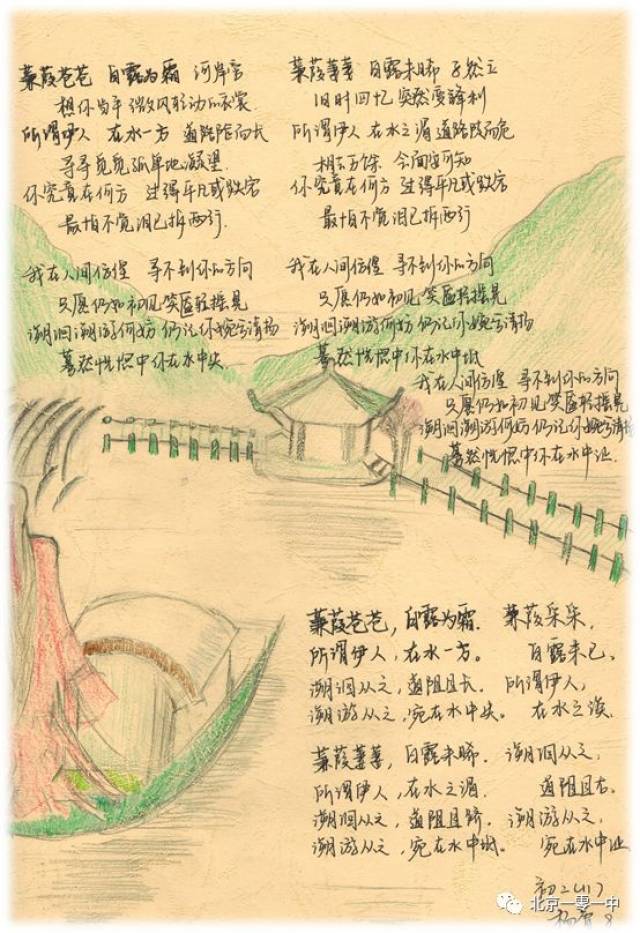 蒹葭苍苍 白露为霜 河岸
想你当年 微风移动的衣裳
所谓伊人 在水一方 道路阻而长
寻寻觅觅孤单地凝望
你究竟在何方 过得平凡或跌宕
最怕不觉泪已拆两行
我在人间彷徨 寻不到你的方向
只愿仍如初见笑靥轻摇晃
溯洄溯游何妨 仍记你婉兮清扬
蓦然恍惚中你在水中央
蒹葭萋萋 白露未晞 孑然立
旧时回忆 突然变锋利
所谓伊人 在水之湄 道路而危
相去万余 会面安可知
你究竟在何方 过得平凡或跌宕
最怕不觉泪已拆两行
我在人间彷徨 寻不到你的方向
只愿仍如初见笑靥轻摇晃
溯洄溯游何妨 仍记你婉兮清扬
蓦然恍惚中你在水中坻
我在人间彷徨 寻不到你的方向
只愿仍如初见笑靥轻摇晃
溯洄溯游何妨 仍记你婉兮清扬
蓦然恍惚中你在水中沚
蒹葭苍苍,白露为霜.
所谓伊人,在水一方。
溯洄从之,道阻且长.
溯游从之,宛在水中央。
蒹葭萋萋,白露未晞.
所谓伊人,在水之湄.
溯洄从之,道阻且跻.
溯游从之,宛在水中坻.
蒹葭采采,
白露未已.
所谓伊人,
在水之涘.
溯洄从之,
道阻且右.
溯游从之,
宛在水中沚
初二(11)
杨
北京一零一中